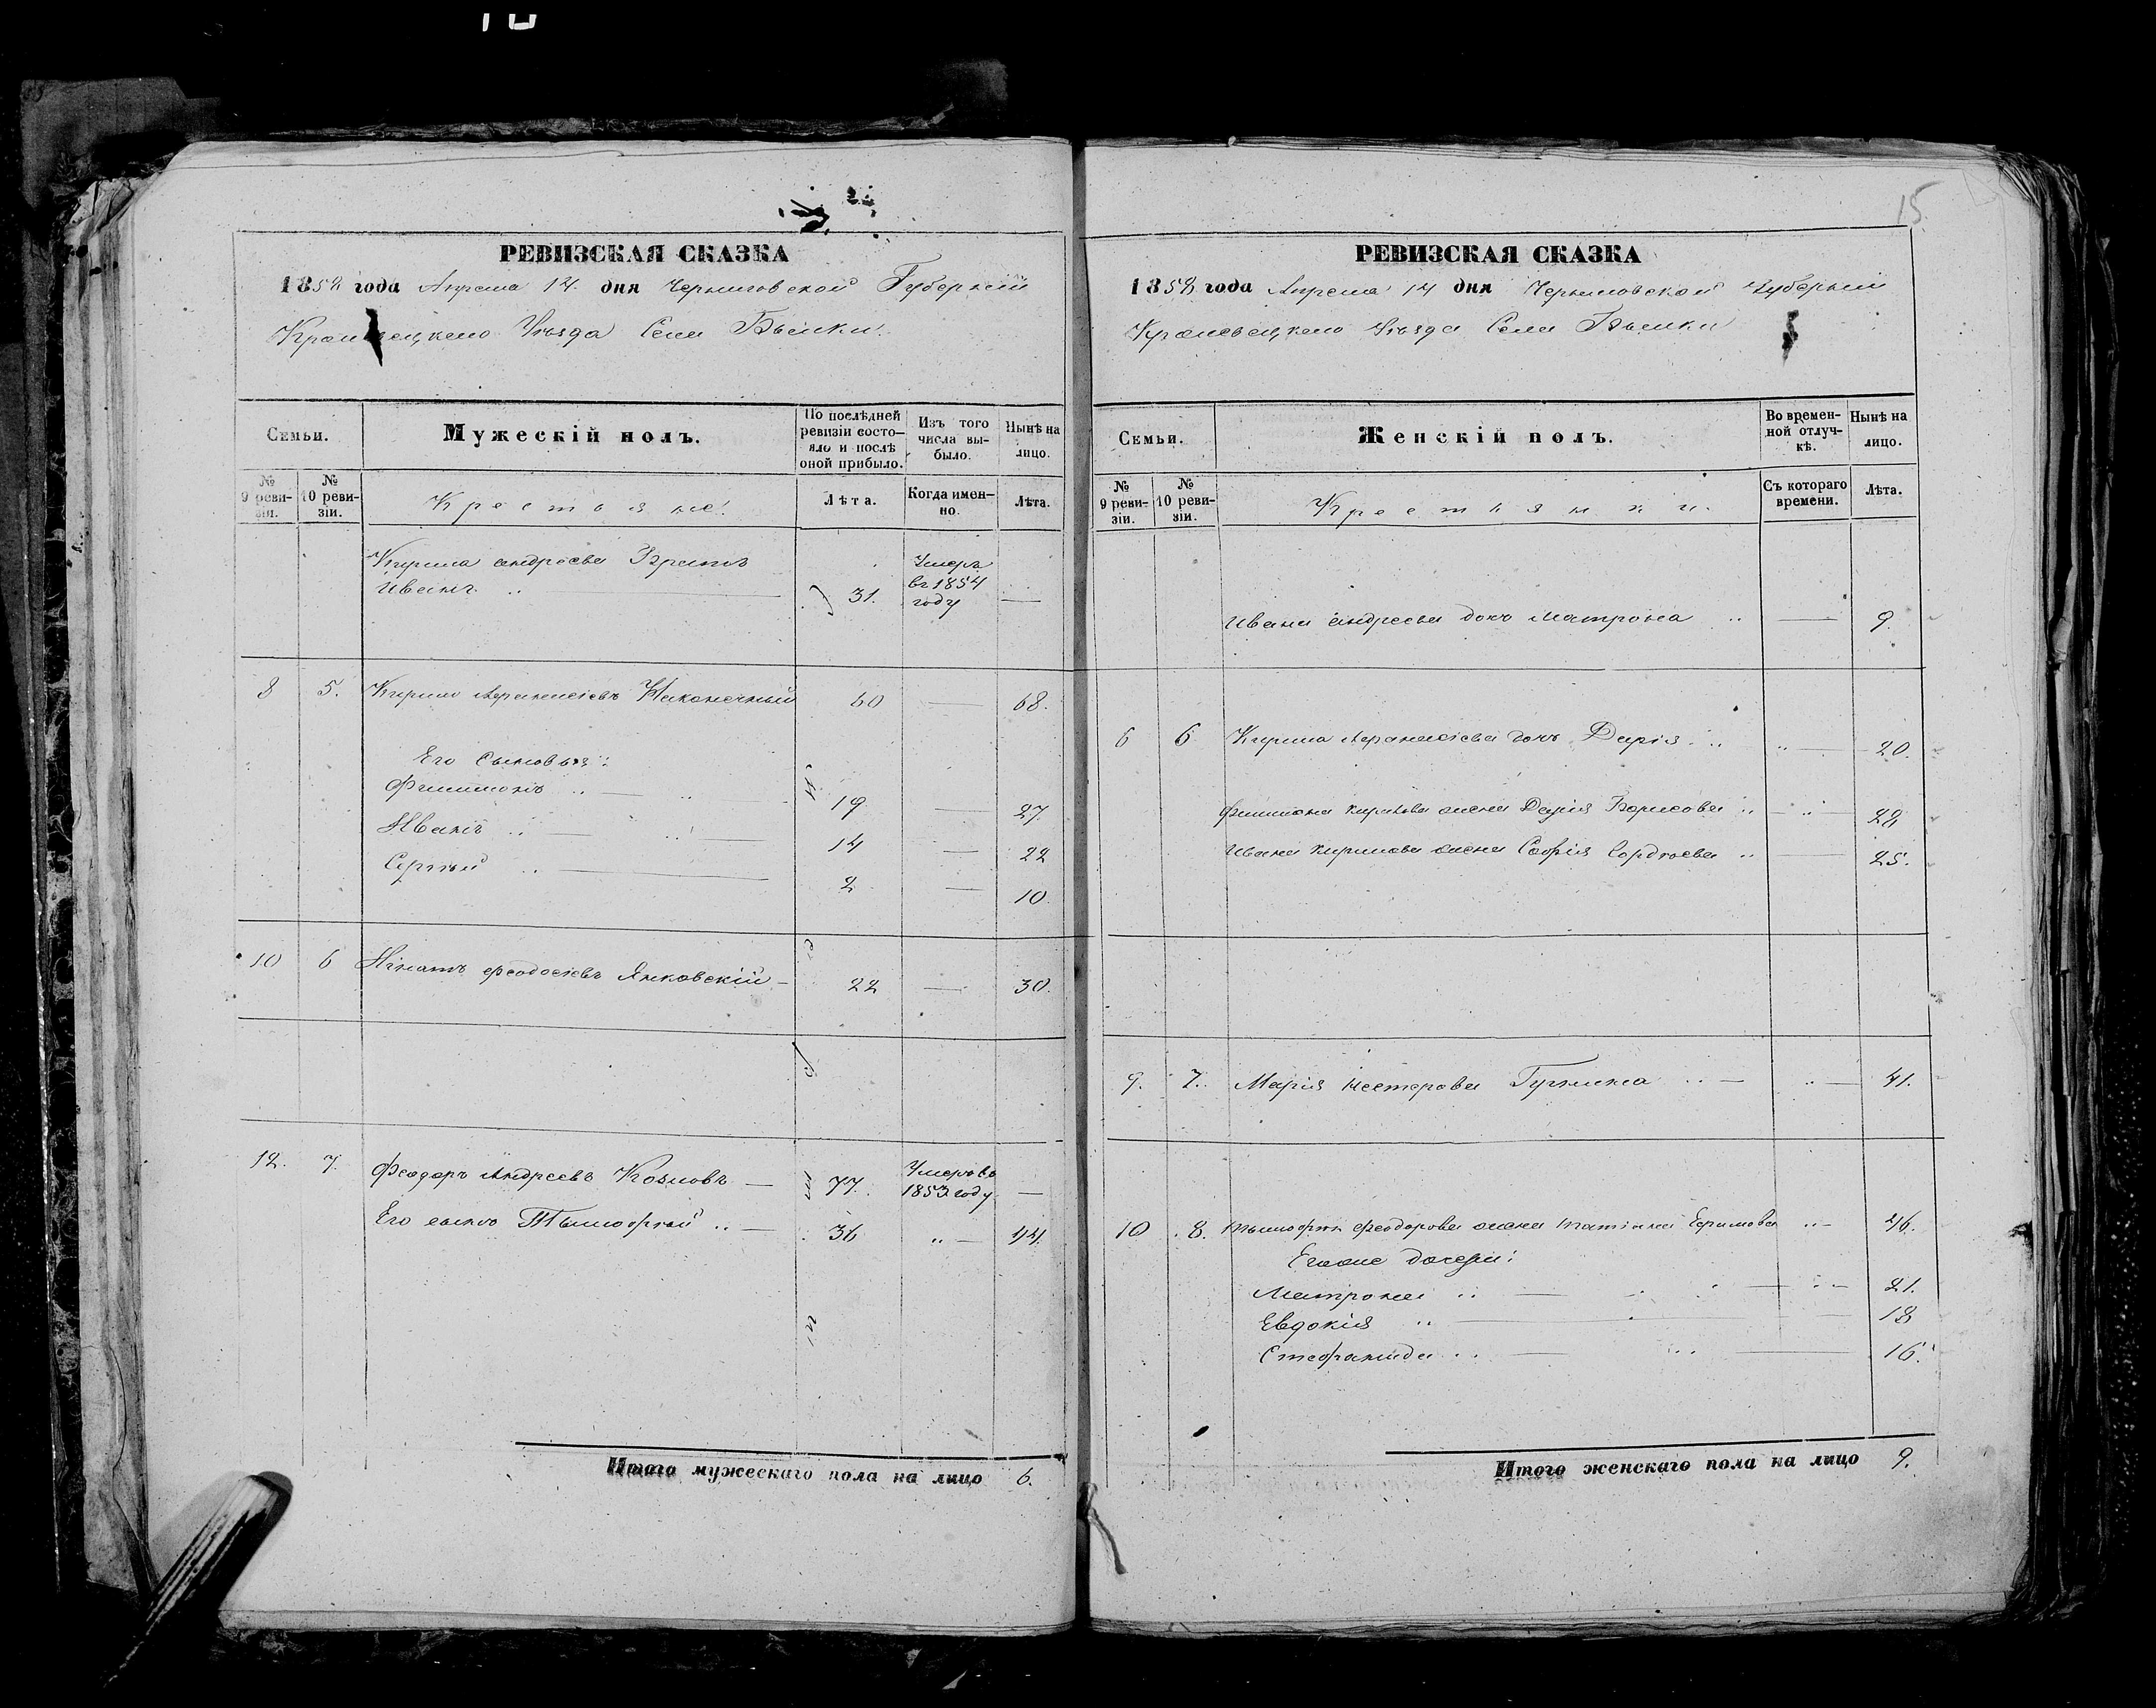 15
РЕВИЗСКАЯ СКАЗКА
1858 года Апреля 14 дня Черниговской Губерніи
Кролевецкаго Уѣзда Села
Семьи.
Мужескій полъ.
По послѣдней ревизіи состояло и послѣ оной прибыло.
Изъ того числа выбыло.
Нынѣ на лицо.
№ 9 ревизіи.
№ 10 ревизіи.
Крестьяне.
Лѣта.
Когда именно.
Лѣта.
Кирила андреева Братъ
Иванъ 31. Умеръ въ 1854 году —
8 5. Кирило Афанасіевъ Наконечный 60 — 68.
Его Сыновья:
Филимонъ 19 — 27
Иванъ 14 — 22
Сергѣй 2 — 10.
10 6 Игнатъ феодосіевъ Янковскій 22 — 30.
12. 7. Феодоръ Андреевъ Козловъ — 77. Умеръ въ 1853 году —
Его сынъ Тымофей 36 „ — 44.
Итого мужескаго пола на лицо 6.
РЕВИЗСКАЯ СКАЗКА
1858 года Апреля 14 дня Черниговской Губерніи
Кролевецкаго Уѣзда Села
Семьи.
Женскій полъ.
Во временной отлучкѣ.
Нынѣ на лицо.
№ 9 ревизіи.
№ 10 ревизіи.
Крестьянки.
Съ котораго времени.
Лѣта.
Ивана андреева дочь Матрона — 9.
6 6 Кирила Афанасіева дочь Дарія „ — 20.
Филимона кирилова жена Дарія Борисова „ — 28
Ивана кирилова жена Софія — 25.
9. 7. Марія Нестерова „ — 41.
10 8. Тымофея феодорова жена татіана Ефимова „ — 46.
Егоже дочери:
Матрона 21.
Евдокія 18
Стефанида 16.
Итого женскаго пола на лицо 9.